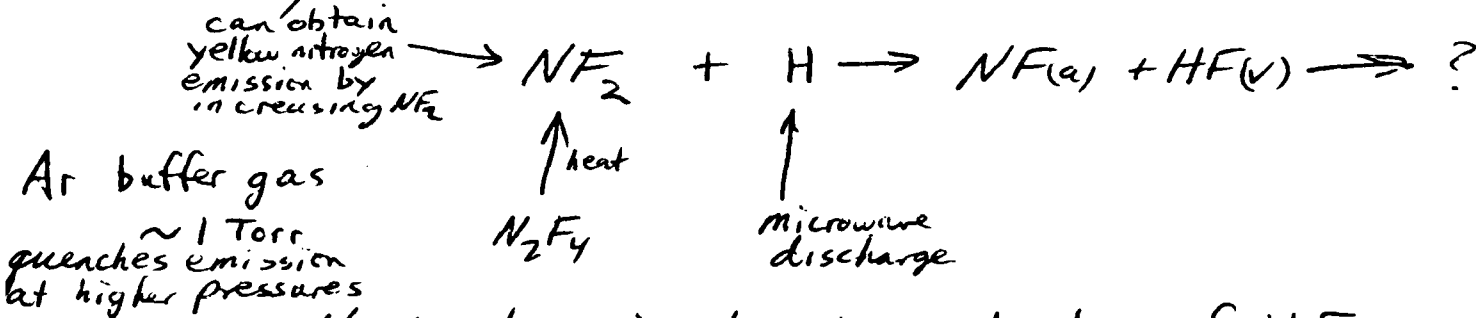 can obtain
yellow nitrogen
emission by
increasing NF₂
→ NF₂ + H → NF(a) + HF(v) →→ ?
heat
Ar buffer gas
~ 1 Torr
quenches emission
at higher pressures
N₂F₄
microwave
discharge